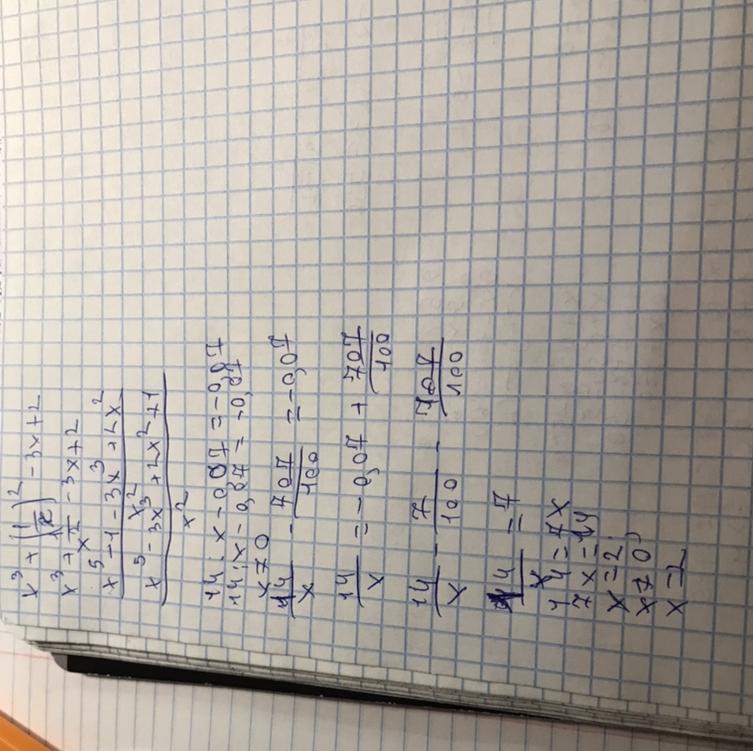 x³ + (1/x)² - 3x + 2
x³ + 1/x² - 3x + 2
x⁵ - 1 - 3x³ + 2x²
x⁵ - 3x³ + 2x² + 1
x²
14 : x - 0,07 = -0,07
14 : x - 0,07 = -0,07
x ≠ 0
14/x - 707/100 = -0,07
14/x = -0,07 + 707/100
14/x - 7/100 - 707/100
14/x = 7
14 = 7x
7x = 14
x = 2
x ≠ 0
x = 2